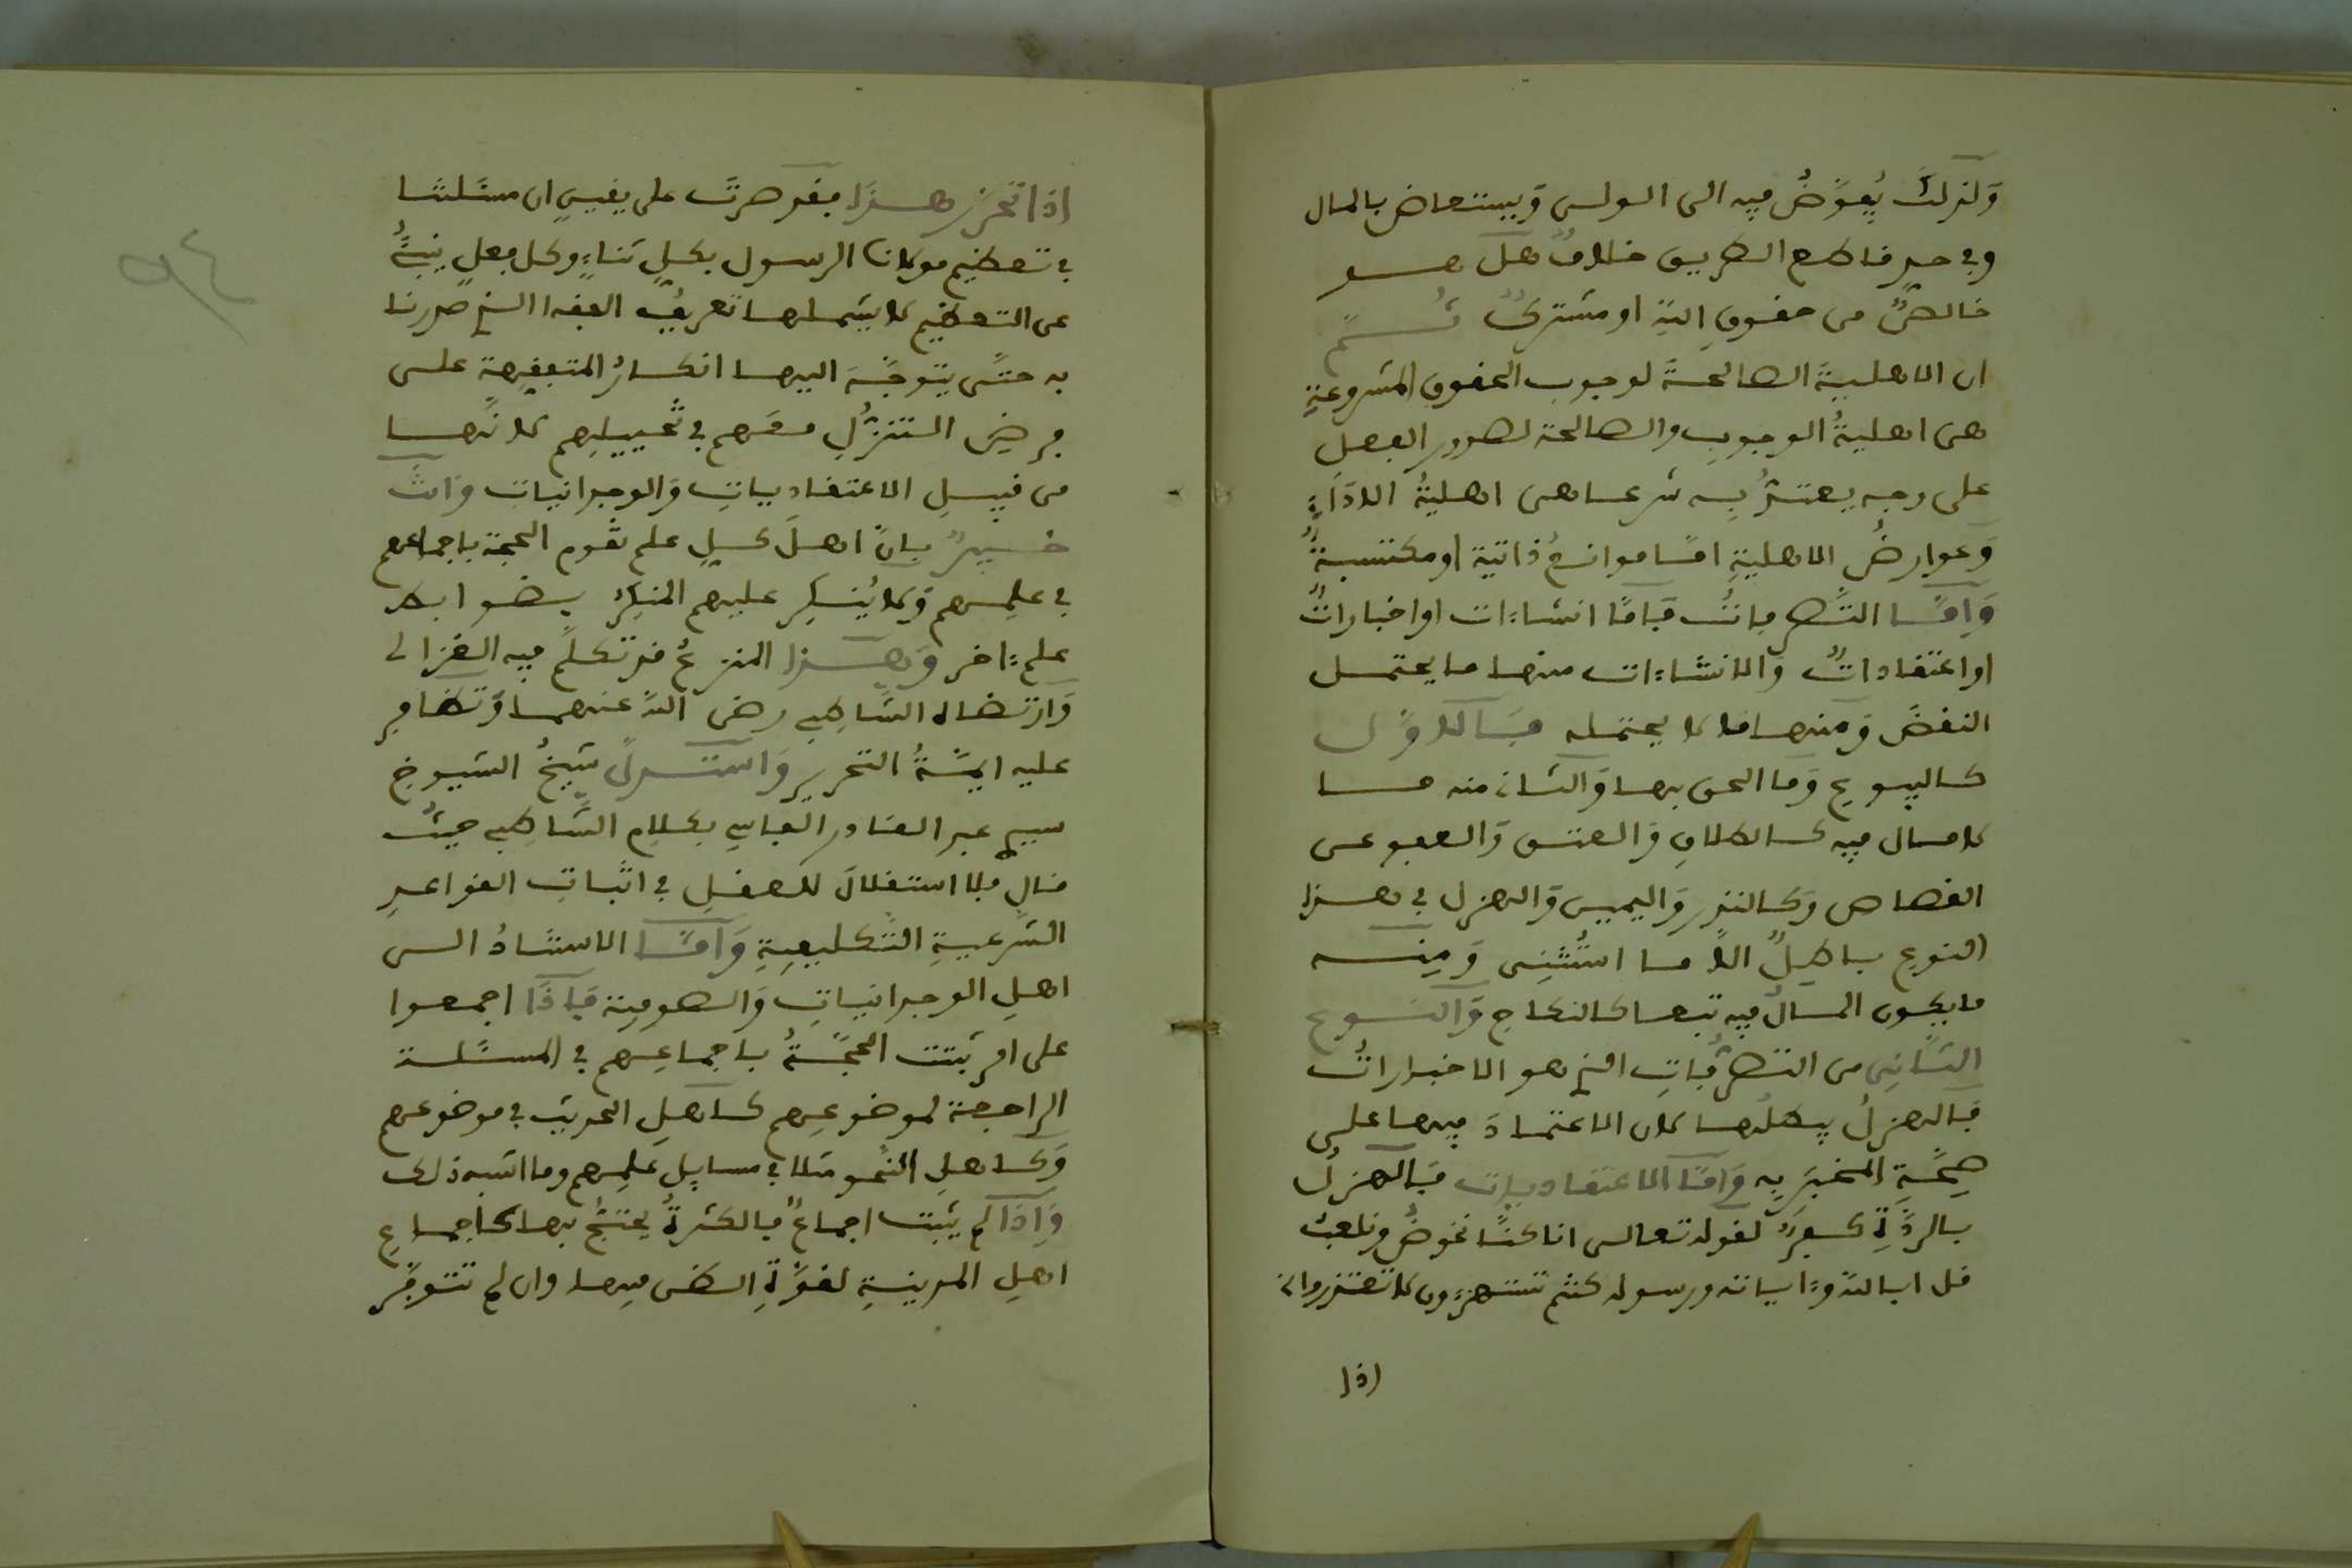 وَلذلكَ يُفوَّضُ فيه الى الولى وَيستعاض بالمال
وفى حدِ قاطع الطريق خلافٌ هل هو
خالصٌ من حقوقِ اللهِ او مشتركٌ ثُمَّ
ان الاهليةَ الصالحةَ لوجوب الحقوق المشروعةِ
هى اهليةُ الوجوبِ والصالحة لصدور الفعل
على وجه يعتدُّ بِه شرعا هى اهليةُ الادَاءِ
وَعوارضُ الاهليةِ امَّا موانعُ ذاتية او مكتسبةٌ
وَامَّا التَّصرفاتُ فَامَّا انشاءات او اخباراتٌ
او اعتقاداتٌ وَالانشاءات منها ما يحتمل
النقضَ وَمنها ما لا يحتمله فَالاوَّل
كالبيوع وَما الحق بها وَالثانى منه ما
لا مال فيه كالطلاقِ وَالعتق وَالعفو عن
القصاص وَكالنذر وَاليمين وَالهزل فى هذا
النوع باطلٌ الاَّ ما استُثنِى وَمِنه
ما يكون المالُ فيه تبعا كالنكاح وَالنوع
الثَّانِى من التصرُّفاتِ الذى هو الاخباراتُ
فَالهزلُ يبطلُها لان الاعتمادَ فيها على
صِحَّةِ المخبَرِ به وَامَّا الاعتقاديات فَالهزلُ
بالردَّةِ كفرٌ لقوله تعالى انما كنَّا نخوضُ ونلعبُ
قل ابالله وءاياته ورسوله كنتم تستهزءون لا تعتذروا
اذا
اذا تحرَّر هذَا فقد صرتَ على يقينٍ ان مسئلتنا
فى تعظيم مولانا الرسول بكلِ ثناءٍ وكل فعلٍ ينبئُ
عن التعظيم لا يشملها تعريفُ الفقه الذى صدرنا
به حتَّى يتوجَّهَ اليها انكارُ المتفقِهة على
فرضِ التنزُّلِ معَهم فى تخييلِهم لانَّها
من قبيلِ الاعتقادياتِ وَالوجدانيات وَانتَ
خبيرٌ بانَّ اهلَ كلِ علم تقوم الحجة باجماعهم
فى علمِهم وَلا يُنكِر عليهم المنكِرُ بضوابط
علم ءاخر وَهذا المنزعُ قد تكلَّم فيه الغزالى
وَارتضاه الشَّاطِبى رضى اللهُ عنهما وَتظافر
عليه ايمَّةُ التحرير وَاستدلَّ شيخُ الشيوخِ
سيدى عبد القادر الفاسى بكلامِ الشَّاطِبى حيثُ
قال فلا استقلالَ للعقلِ فى اثباتِ القواعدِ
الشَّرعيةِ التَّكليفيةِ وَامَّا الاستنادُ الى
اهلِ الوجدانياتِ وَالصوفِية فَاذَا اجمعوا
على امرٍ ثبتت الحجَّةُ باجماعِهم فى المسئَلة
الراجعة لموضوعِهم كاهلِ الحديث فى موضوعهم
وَكاهلِ النَّحو مثلا فى مسايِل علمِهم وما اشبه ذلك
وَاذَا لم يثبت اجماعٌ فالكثرةُ يحتجُّ بها كاجماعِ
اهلِ المدينةِ لقوَّةِ الظن فيها وان لم تتوفَّر